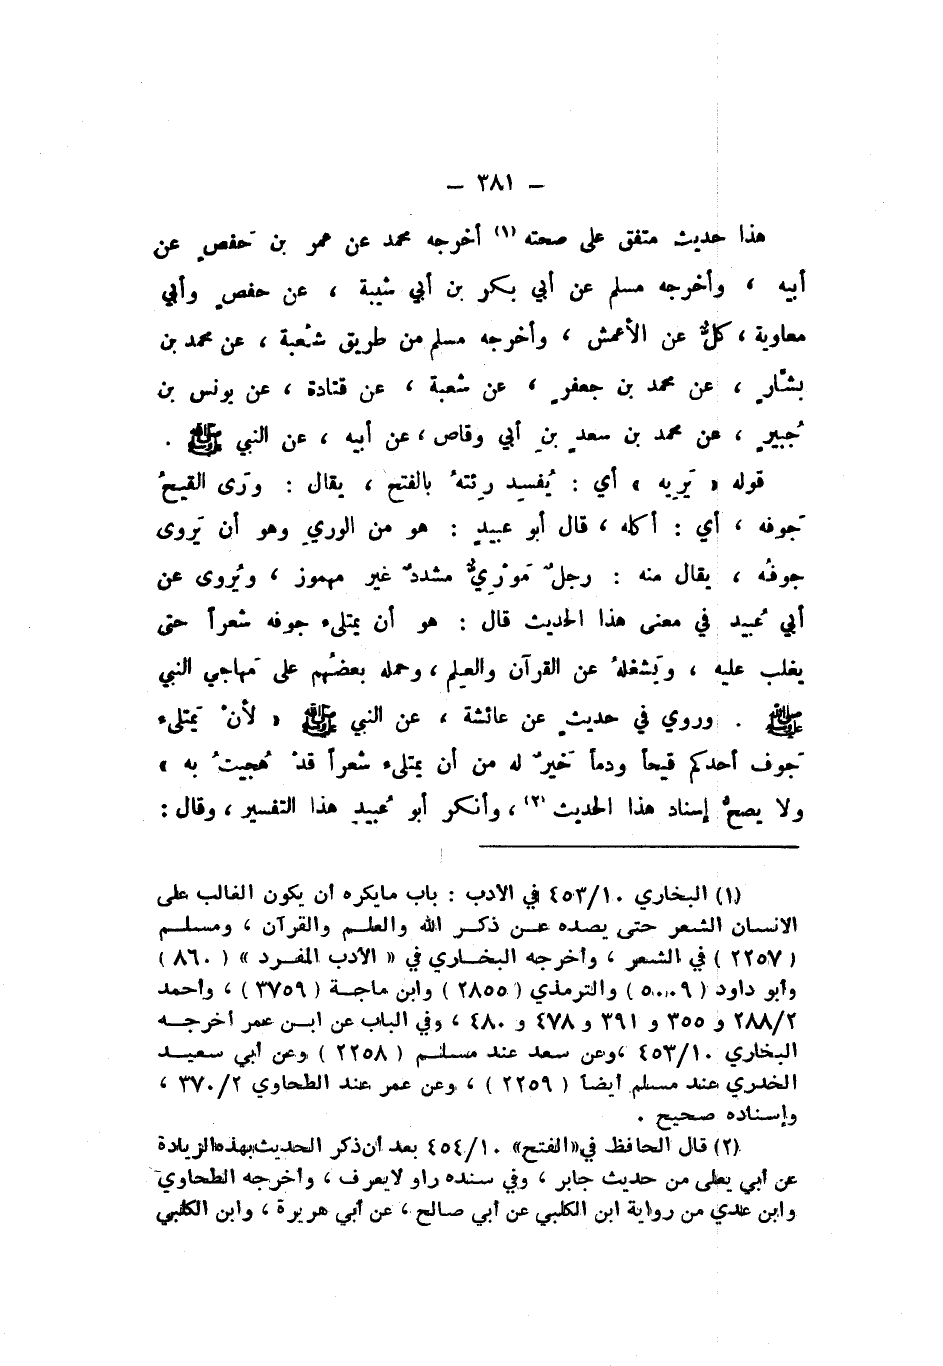 – ٣٨١ –
هذا حديث متفق على صحته (١) أخرجه محمد عن عمر بن حَفصٍ عن
أبيه ، وأخرجه مسلم عن أبي بكر بن أبي شيبة ، عن حفصٍ وأبي
معاوية ، كلٌّ عن الأعمش ، وأخرجه مسلم من طريق شُعبة ، عن محمد بن
بشَّارٍ ، عن محمد بن جعفرٍ ، عن شعبة ، عن قتادة ، عن يونس بن
جُبيرٍ ، عن محمد بن سعدٍ بنِ أبي وقاص ، عن أبيه ، عن النبي ﷺ .
قوله « يَرِيه » أي : يُفسِد رِئتهُ بالفتح ، يقال : وَرَى القيحُ
جَوفه ، أي : أكله ، قال أبو عبيدٍ : هو من الوريِ وهو أن يَروى
جوفُه ، يقال منه : رجلٌ مَوْرِيٌّ مشددٌ غير مهموز ، ويُروى عن
أبي عُبيد في معنى هذا الحديث قال : هو أن يمتلىء جوفه شعراً حتى
يغلب عليه ، ويَشغلهُ عن القرآن والعِلم ، وحمله بعضُهم على مَهاجي النبي
ﷺ . وروي في حديثٍ عن عائشة ، عن النبي ﷺ « لأنْ يَمتلىء
جَوف أحدكم قيحاً ودماً خَيرٌ له من أن يمتلىء شعراً قدْ هُجيتُ به »
ولا يصحُّ إسناد هذا الحديث (٢) ، وأنكر أبو عُبيدٍ هذا التفسير ، وقال :
(١) البخاري ٤٥٣/١٠ في الادب : باب مايكره أن يكون الغالب على
الانسان الشعر حتى يصده عن ذكر الله والعلم والقرآن ، ومسلم
( ٢٢٥٧ ) في الشعر ، وأخرجه البخاري في « الأدب المفرد » ( ٨٦٠ )
وأبو داود ( ٥٠٠٩ ) والترمذي ( ٢٨٥٥ ) وابن ماجة ( ٣٧٥٩ ) ، وأحمد
٢٨٨/٢ و ٣٥٥ و ٣٩١ و ٤٧٨ و ٤٨٠ ، وفي الباب عن ابن عمر أخرجه
البخاري ٤٥٣/١٠ ، وعن سعد عند مسلم ( ٢٢٥٨ ) وعن أبي سعيد
الخدري عند مسلم أيضاً ( ٢٢٥٩ ) ، وعن عمر عند الطحاوي ٣٧٠/٢ ،
وإسناده صحيح .
(٢) قال الحافظ في «الفتح» ٤٥٤/١٠ بعد أن ذكر الحديث بهذه الزيادة
عن أبي يعلى من حديث جابر ، وفي سنده راو لايعرف ، وأخرجه الطحاوي
وابن عدي من رواية ابن الكلبي عن أبي صالح ، عن أبي هريرة ، وابن الكلبي